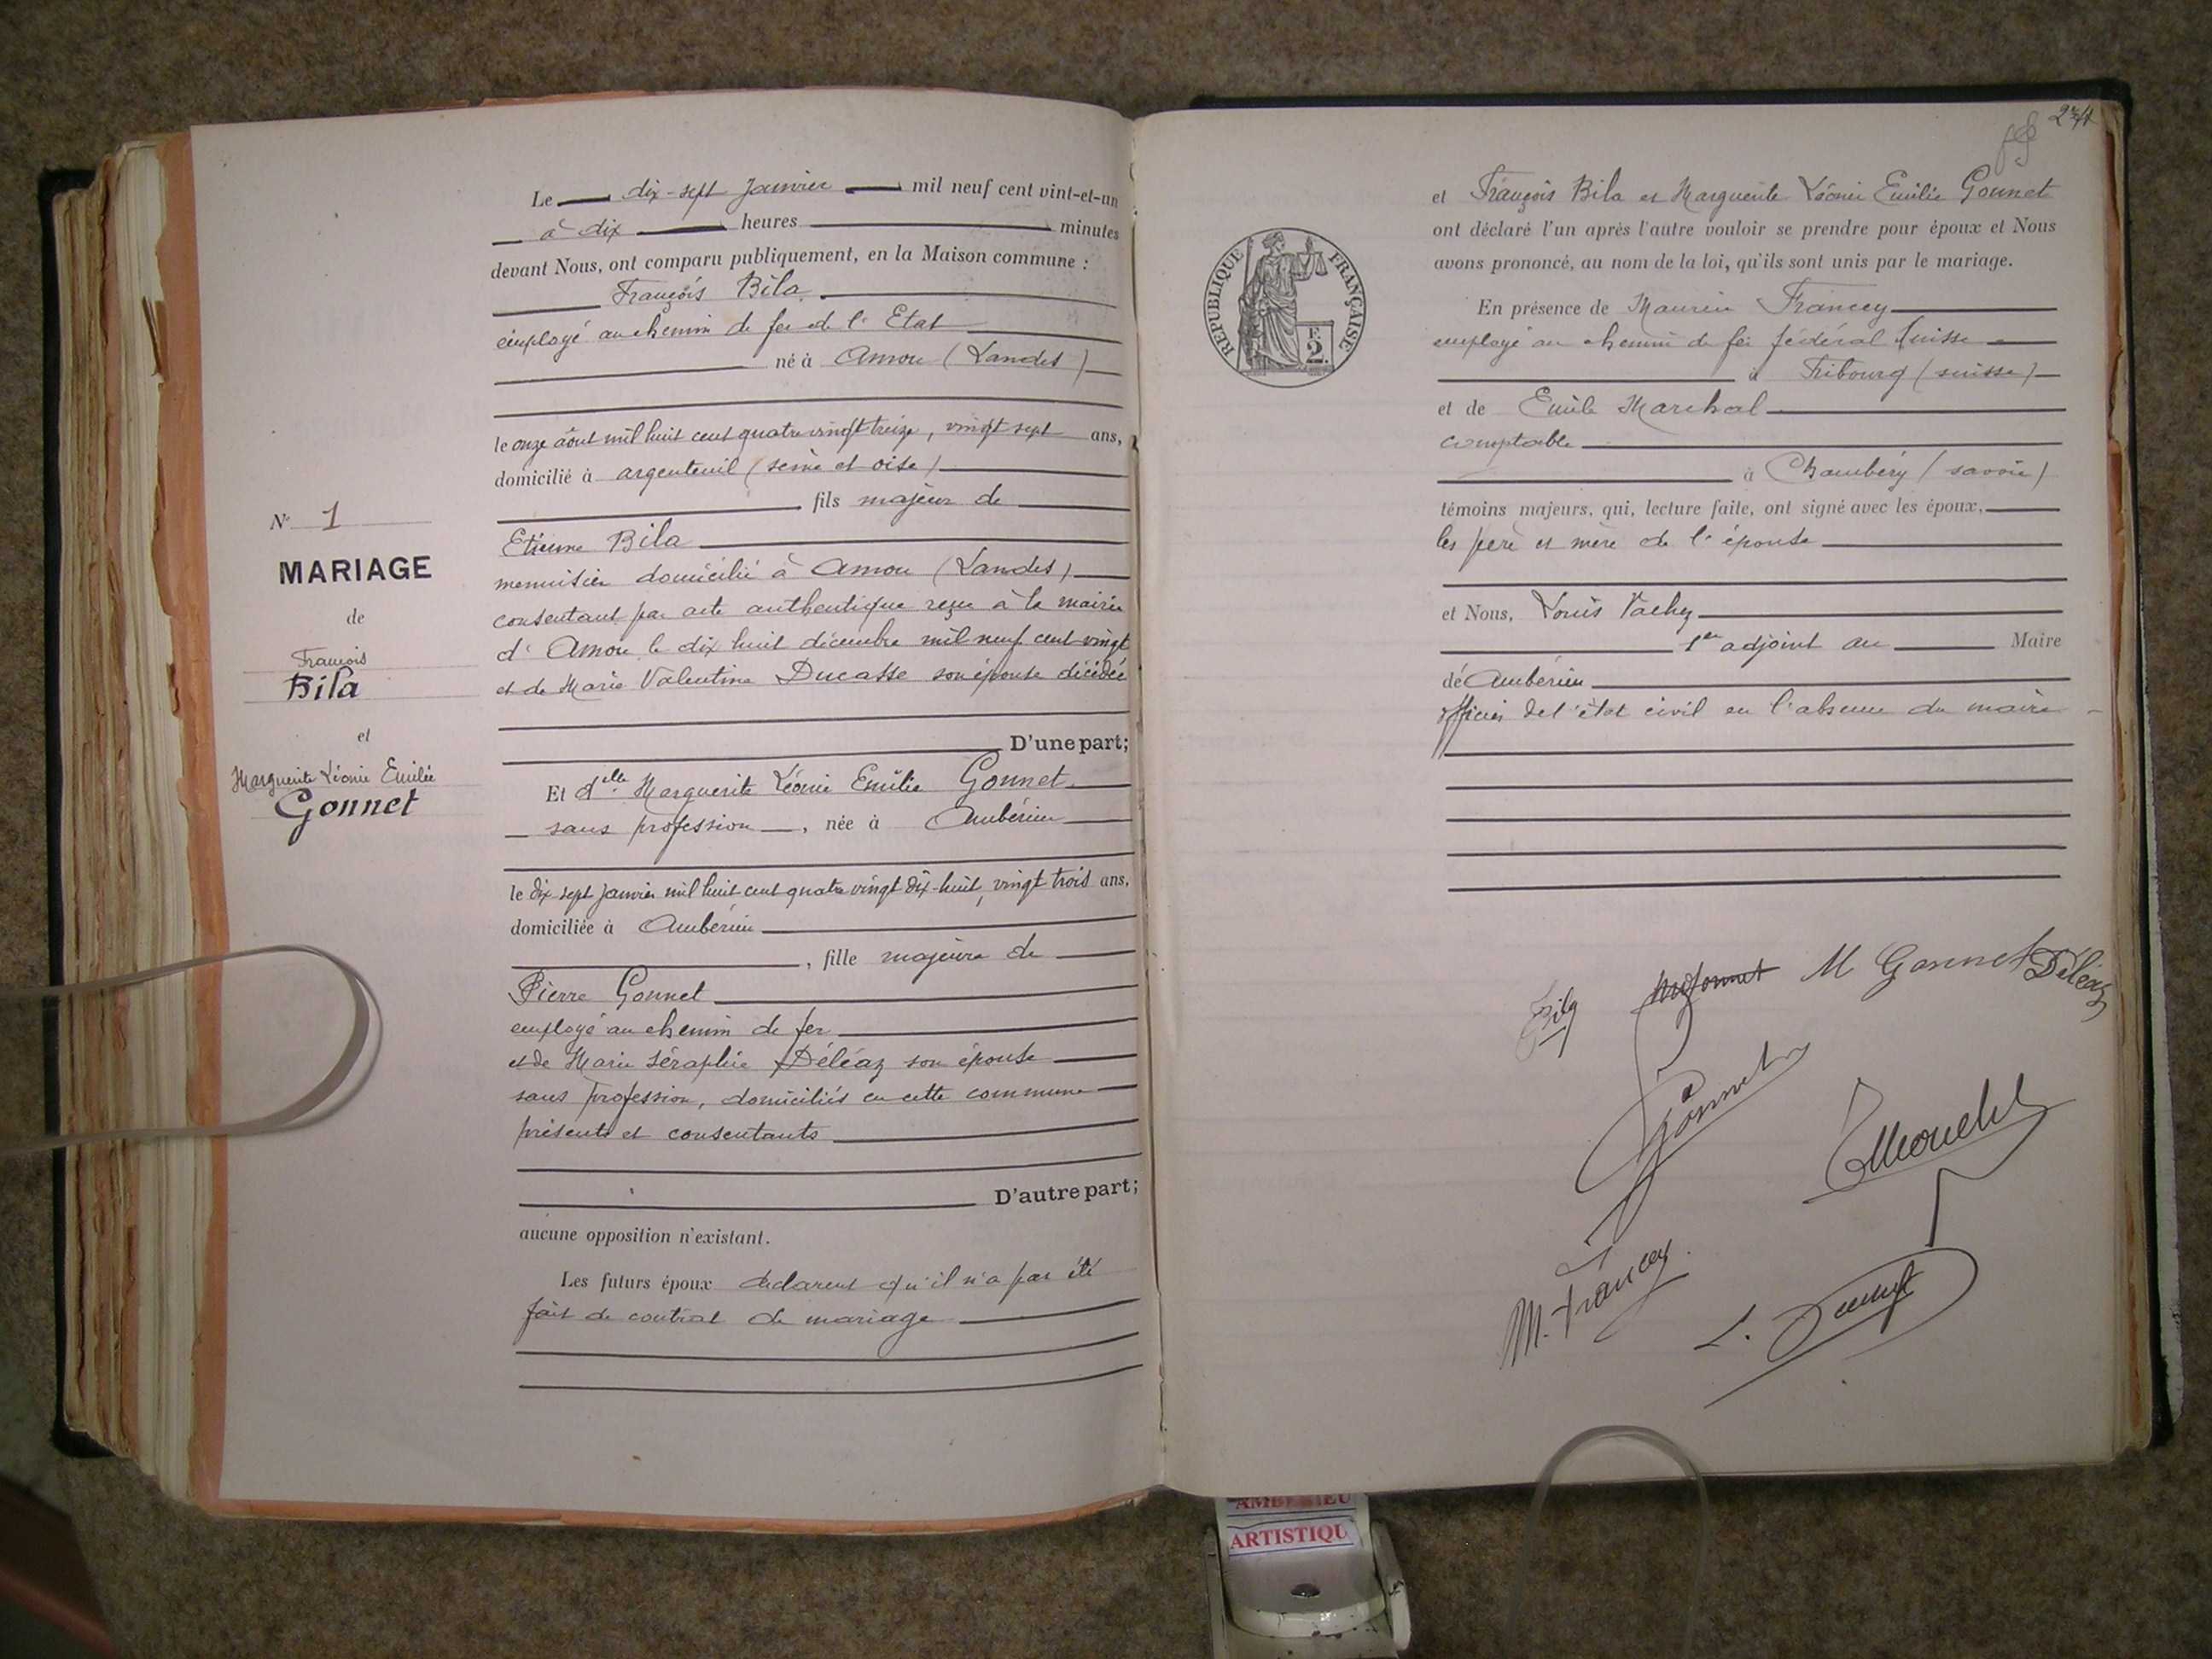 Le dix-sept Janvier mil neuf cent vint-et-un
à dix heures minutes
devant Nous, ont comparu publiquement, en la Maison commune :
François Bila
employé au chemin de fer de l'Etat
né à Amou (Landes)
le onze août mil huit cent quatre vingt treize, vingt sept ans,
domicilié à argenteuil (seine et oise)
fils majeur de
Etienne Bila
menuisier domicilié à Amou (Landes)
consentant par acte authentique reçu à la mairie
d'Amou le dix huit décembre mil neuf cent vingt
et de Marie Valentine Ducasse son épouse décédée
D'une part;
Et delle Marguerite Léonie Emilie Gonnet
sans profession, née à Ambérieu
le dix sept Janvier mil huit cent quatre vingt dix-huit, vingt trois ans,
domiciliée à Ambérieu
, fille majeure de
Pierre Gonnet
employé au chemin de fer
et de Marie Séraphie Déléaz son épouse
sans profession, domiciliés en cette commune
présents et consentants
D'autre part;
aucune opposition n'existant.
Les futurs époux declarent qu'il n'a pas été
fait de contrat de mariage
Nº 1
MARIAGE
de
François
Bila
et
Marguerite Léonie Emilie
Gonnet
et François Bila et Marguerite Léonie Emilie Gonnet
ont déclaré l'un après l'autre vouloir se prendre pour époux et Nous
avons prononcé, au nom de la loi, qu'ils sont unis par le mariage.
En présence de Maurice Francey
employé au chemin de fer fédéral suisse
à Fribourg (suisse)
et de Emile Marchal
comptable
à Chambéry (savoie)
témoins majeurs, qui, lecture faite, ont signé avec les époux,
les père et mère de l'épouse
et Nous, Louis
1er adjoint au Maire
de Ambérieu
officier de l'état civil en l'absence du maire
RÉPUBLIQUE FRANÇAISE
F.
2.
Bila
M Gonnet Déléaz
Gonnet
M. Francey
L.
AMBERIEU
ARTISTIQU